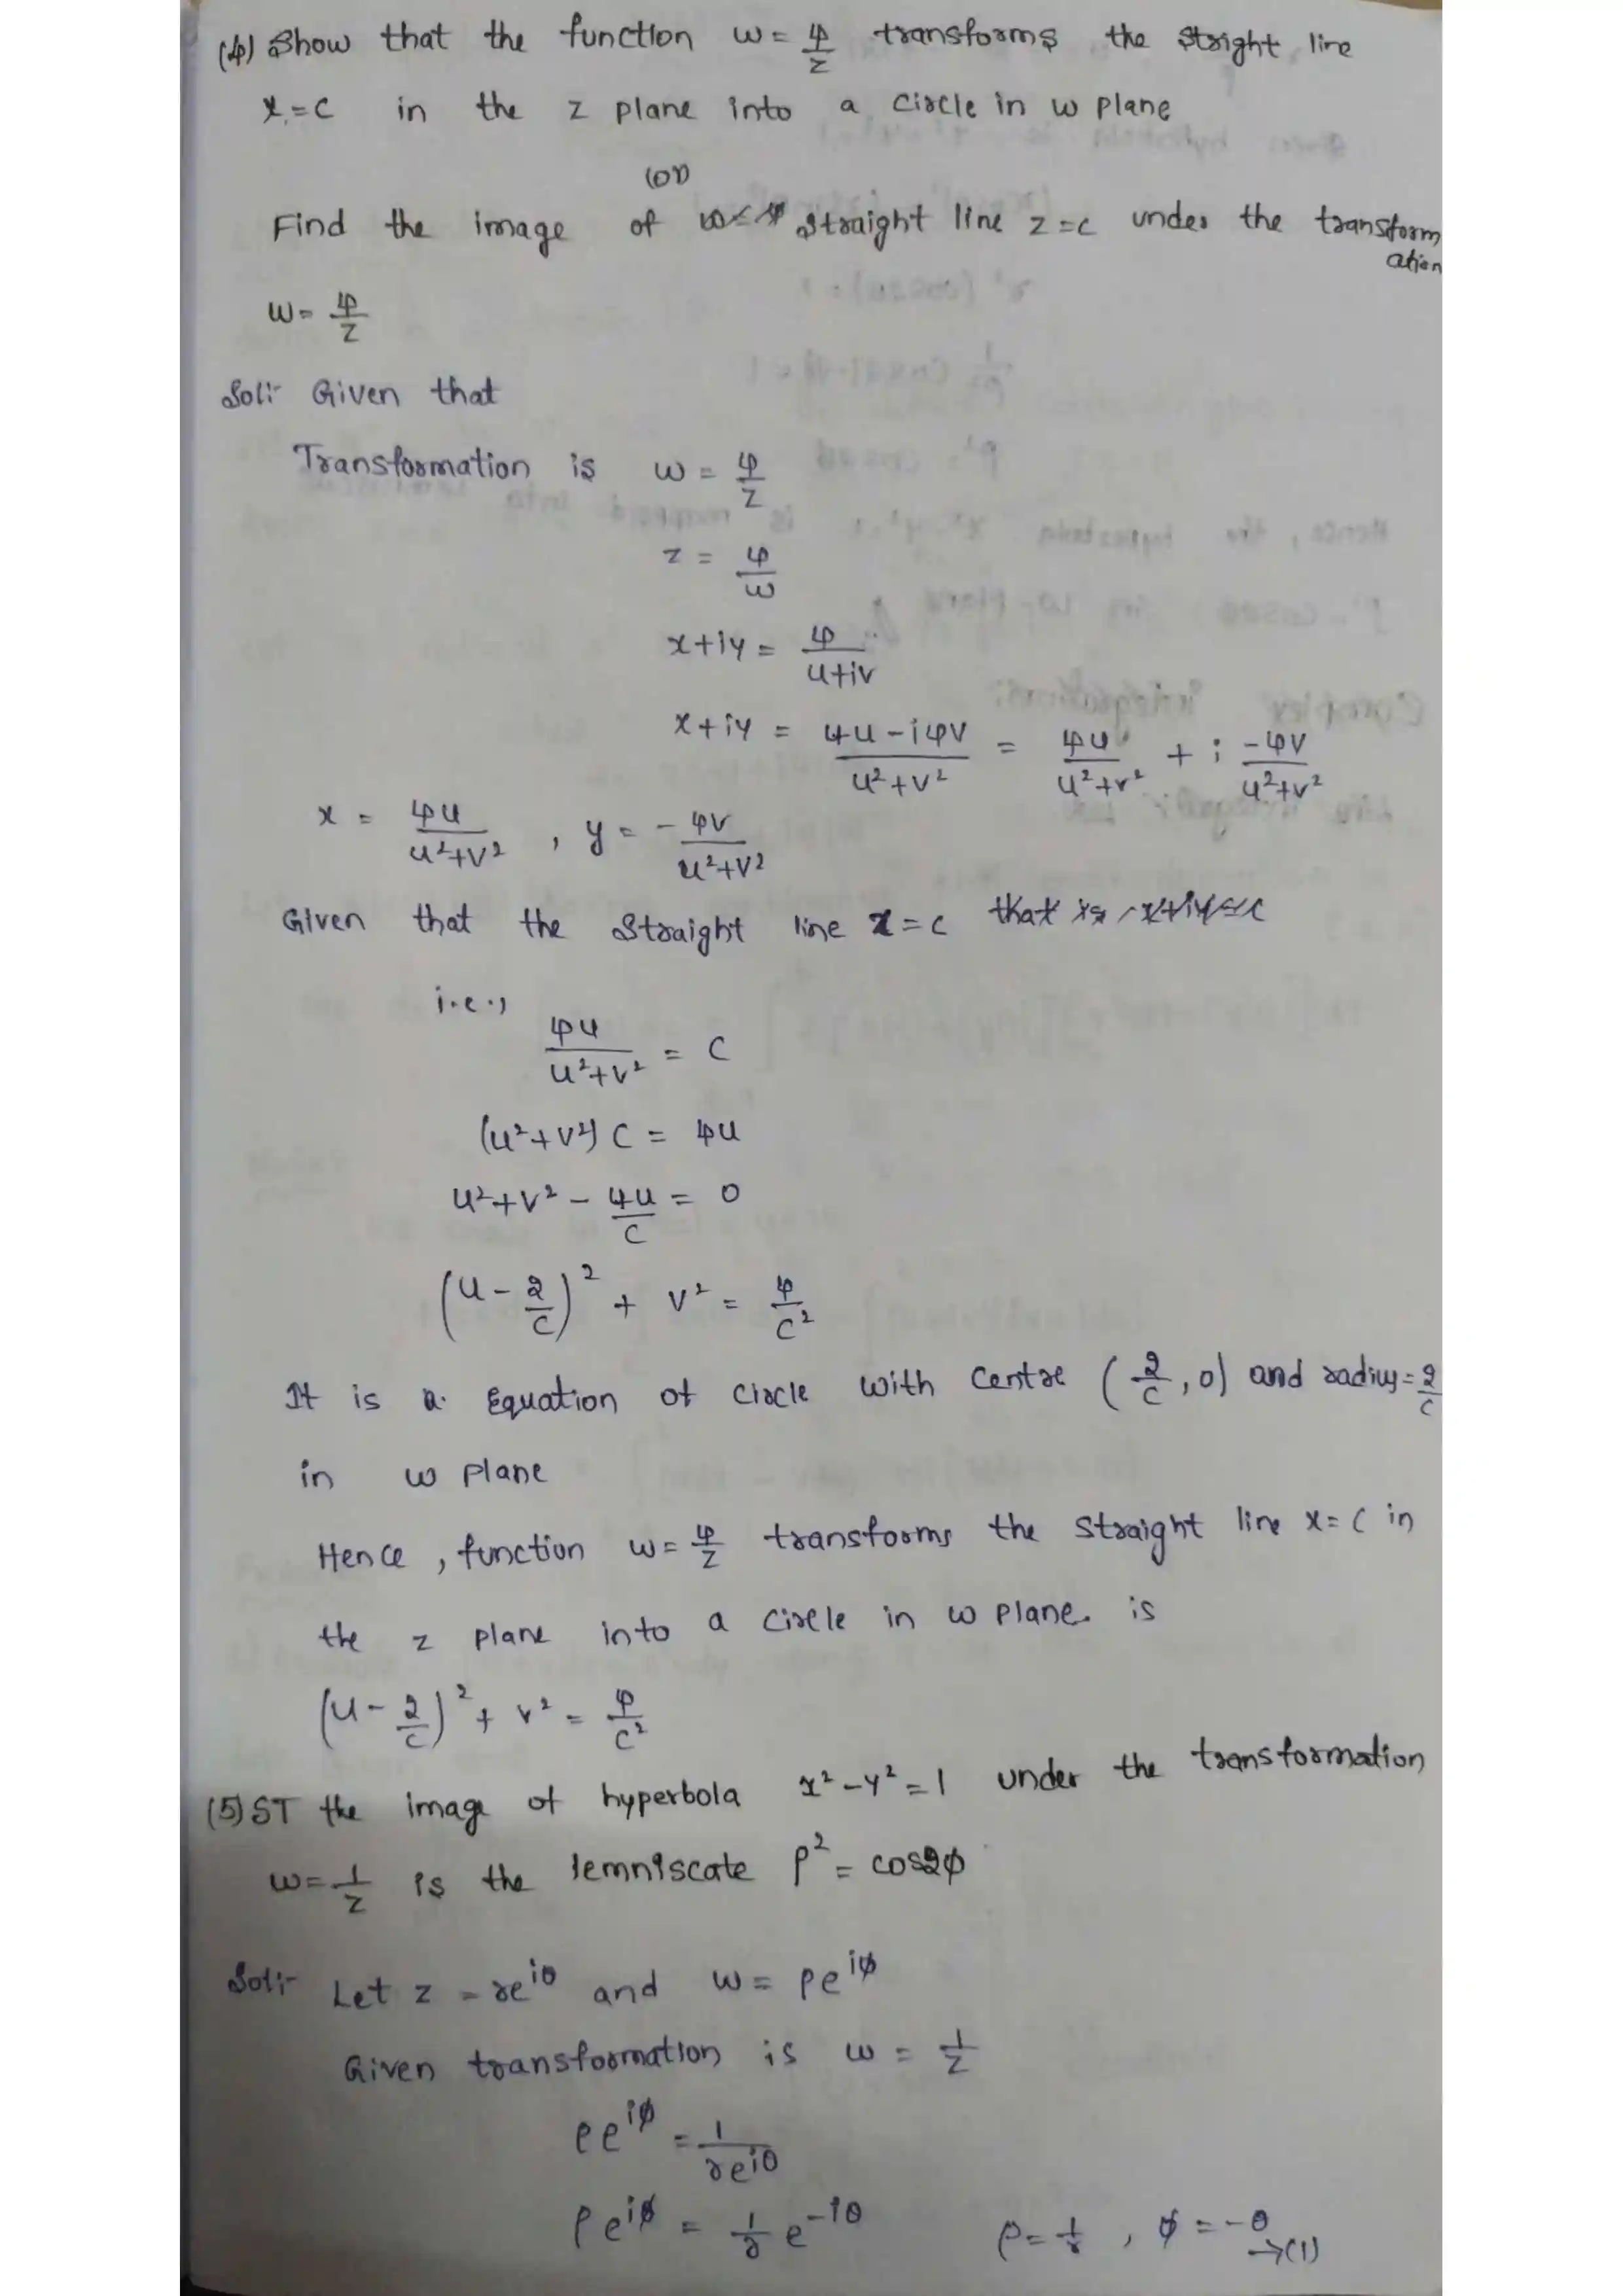 (4) Show that the function w = 4/z transforms the stright line
x = c in the z plane into a circle in w plane
(or)
Find the image of straight line z = c under the transform
ation
w = 4/z
Sol:- Given that
Transformation is w = 4/z
z = 4/w
x+iy = 4/(u+iv)
x+iy = (4u-i4v)/(u²+v²) = 4u/(u²+v²) + i -4v/(u²+v²)
x = 4u/(u²+v²) , y = -4v/(u²+v²)
Given that the straight line x = c that
i.e.,
4u/(u²+v²) = c
(u²+v²) c = 4u
u²+v² - 4u/c = 0
(u - 2/c)² + v² = 4/c²
It is a Equation of circle with centre (2/c, 0) and radius = 2/c
in w plane
Hence, function w = 4/z transforms the straight line x = c in
the z plane into a circle in w plane. is
(u - 2/c)² + v² = 4/c²
(5) ST the image of hyperbola x²-y² = 1 under the transformation
w = 1/z is the lemniscate ρ² = cos2φ
Sol:- Let z = re^{iθ} and w = ρe^{iφ}
Given transformation is w = 1/z
ρe^{iφ} = 1/re^{iθ}
ρe^{iφ} = 1/r e^{-iθ} ρ = 1/r , φ = -θ →(1)